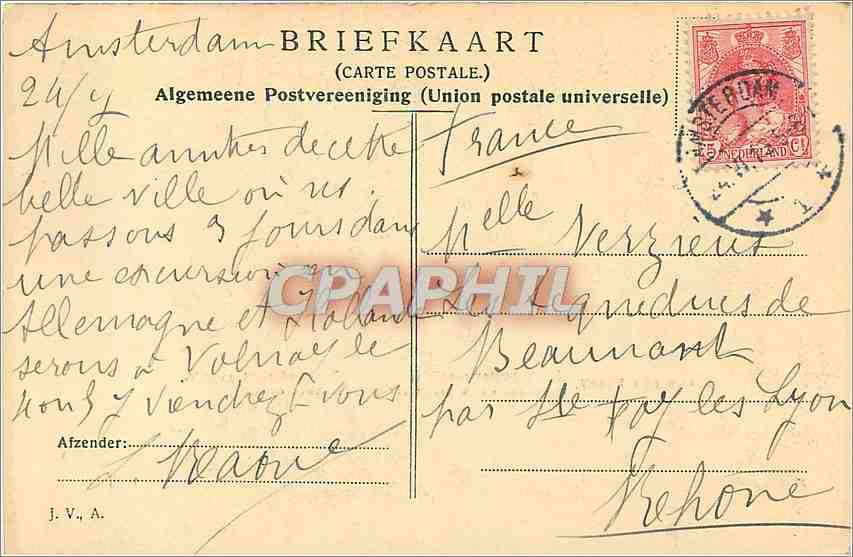 Amsterdam
24/
BRIEFKAART
(CARTE POSTALE.)
Algemeene Postvereeniging (Union postale universelle)
Mille amitiés de cette
belle ville où ns
passons 3 jours dans
une excursion en
Allemagne et Holland
serons à Volnay le
y viendrez vous
Afzender:
J. V., A.
France
Melle Verzieux
Les Aqueducs de
Beaunant
par Ste Foy les Lyon
Rhône
5 NEDERLAND Ct
AMSTERDAM
CPAPHIL